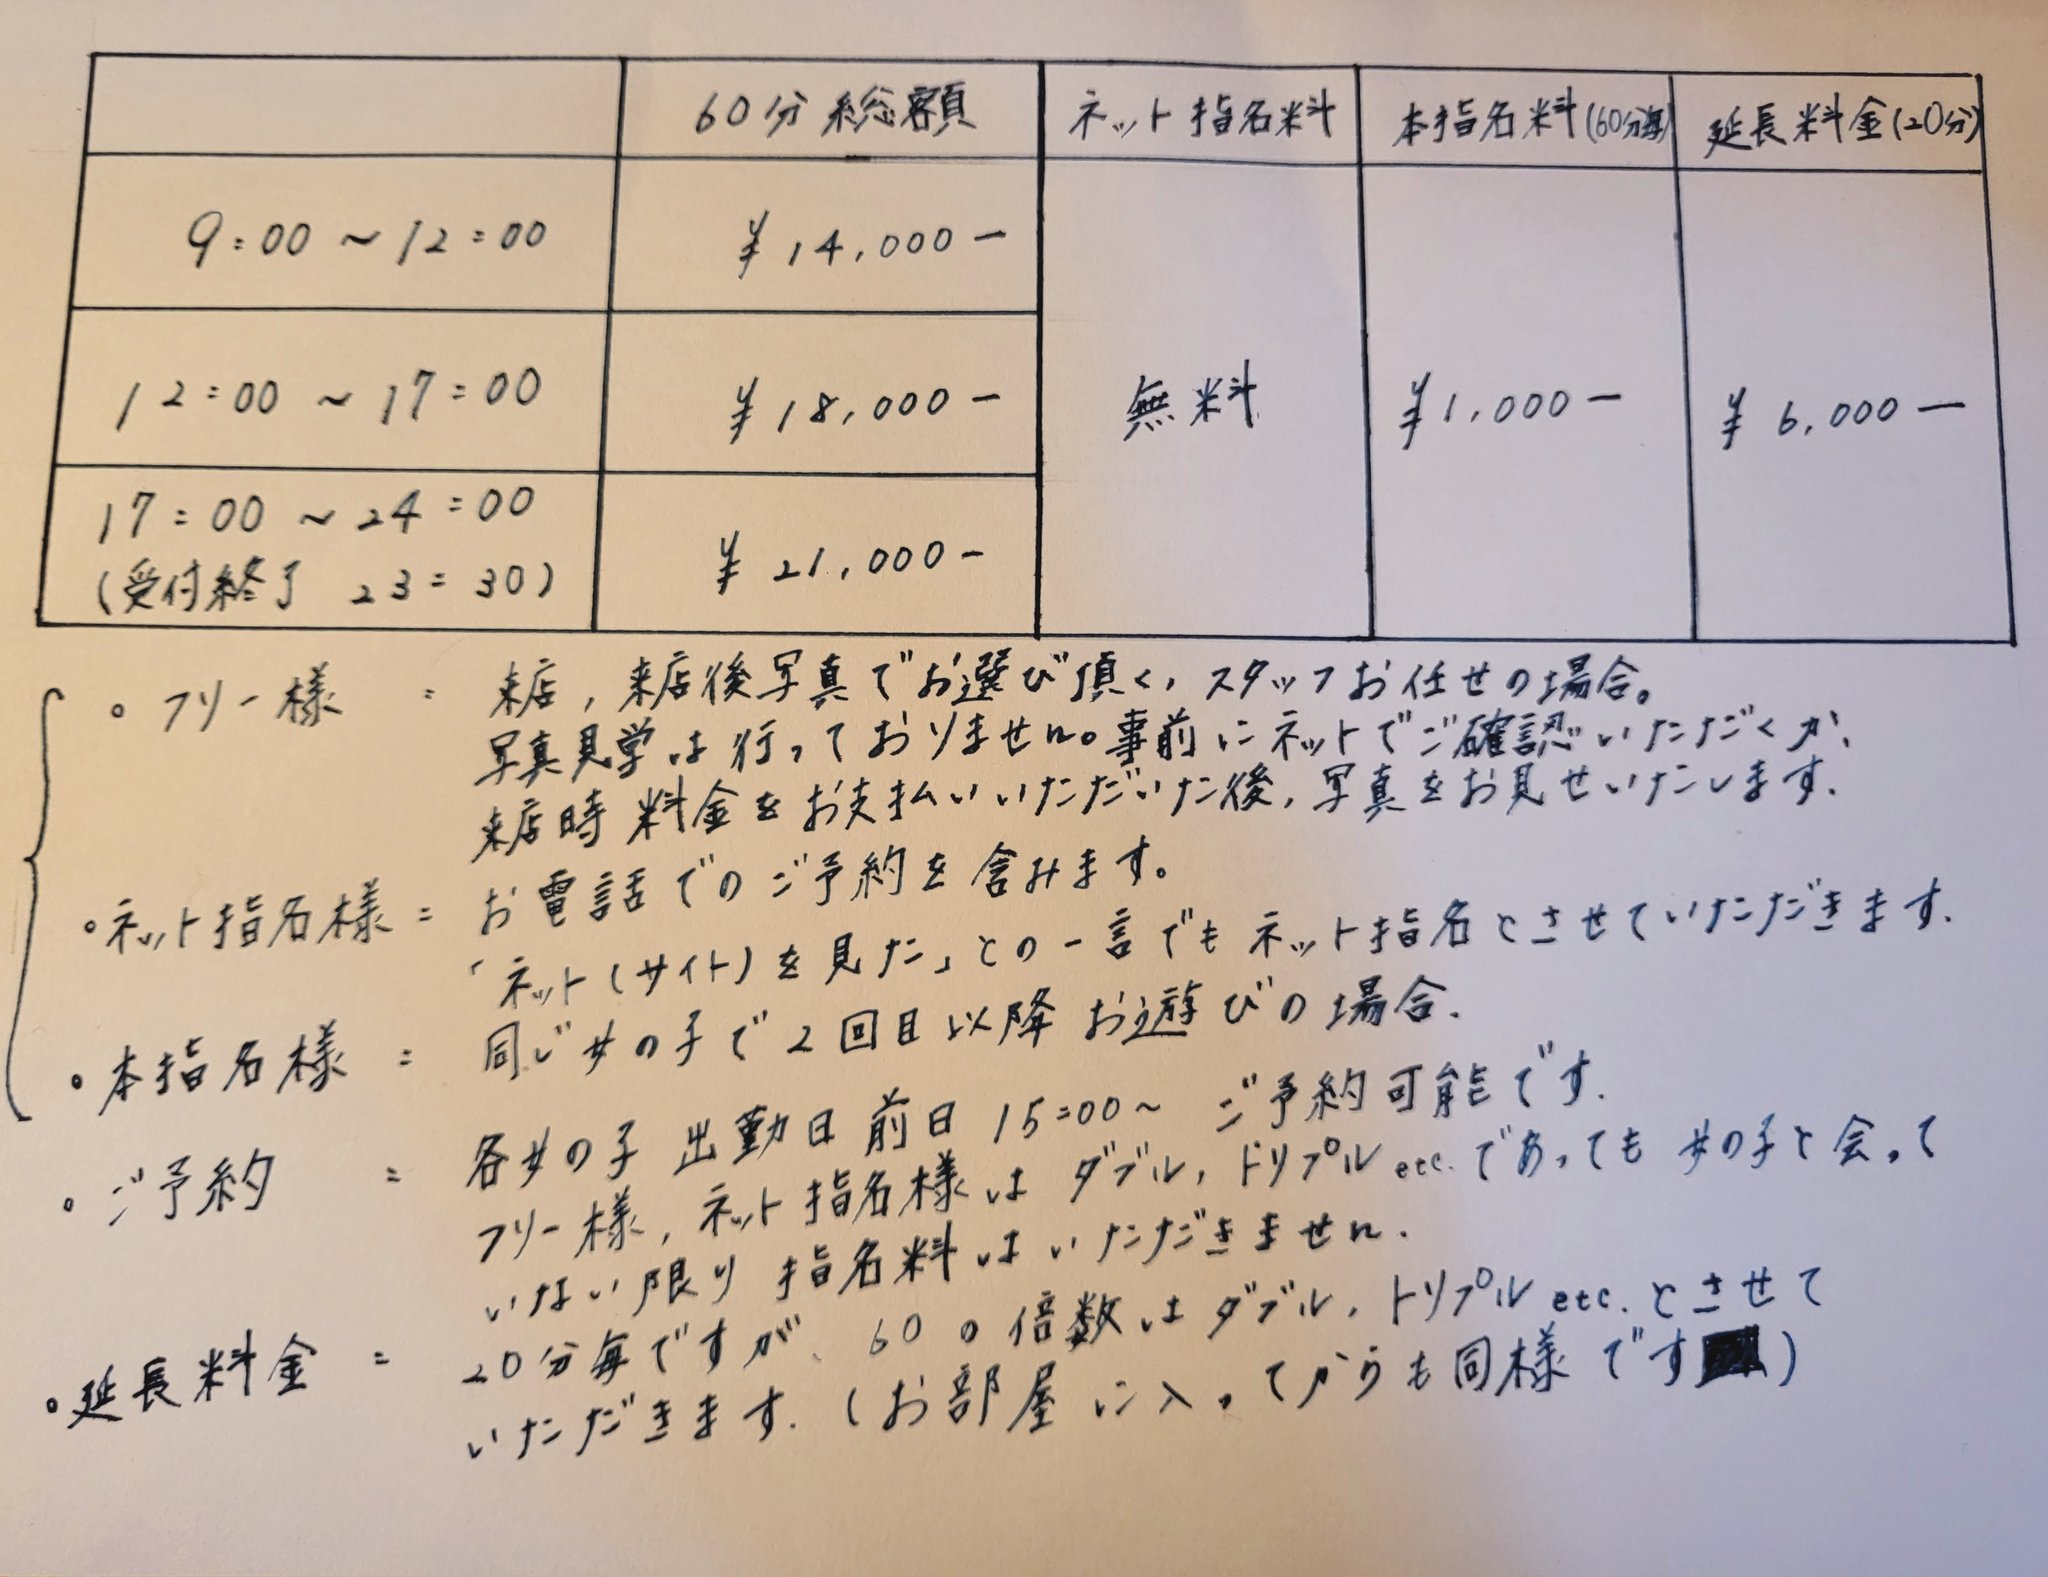 60分総額 ネット指名料 本指名料(60分毎) 延長料金(20分)
9:00 ~ 12:00 ¥14,000ー
12:00 ~ 17:00 ¥18,000ー 無料 ¥1,000ー ¥6,000ー
17:00 ~ 24:00
(受付終了 23:30) ¥21,000ー
。フリー様 : 来店,来店後写真でお選び頂く,スタッフお任せの場合。
写真見学は行っておりません。事前にネットでご確認いただくか、
来店時料金をお支払いいただいた後,写真をお見せいたします.
・ネット指名様 = お電話でのご予約を含みます。
「ネット(サイト)を見た」との一言でもネット指名とさせていただきます.
・本指名様 = 同じ女の子で2回目以降お遊びの場合.
・ご予約 = 各女の子出勤日前日15:00~ ご予約可能です.
フリー様,ネット指名様はダブル,トリプルetc.であっても女の子と会って
いない限り指名料はいただきません.
・延長料金 = 20分毎ですが、60の倍数はダブル,トリプルetc.とさせて
いただきます.(お部屋に入ってからも同様です)